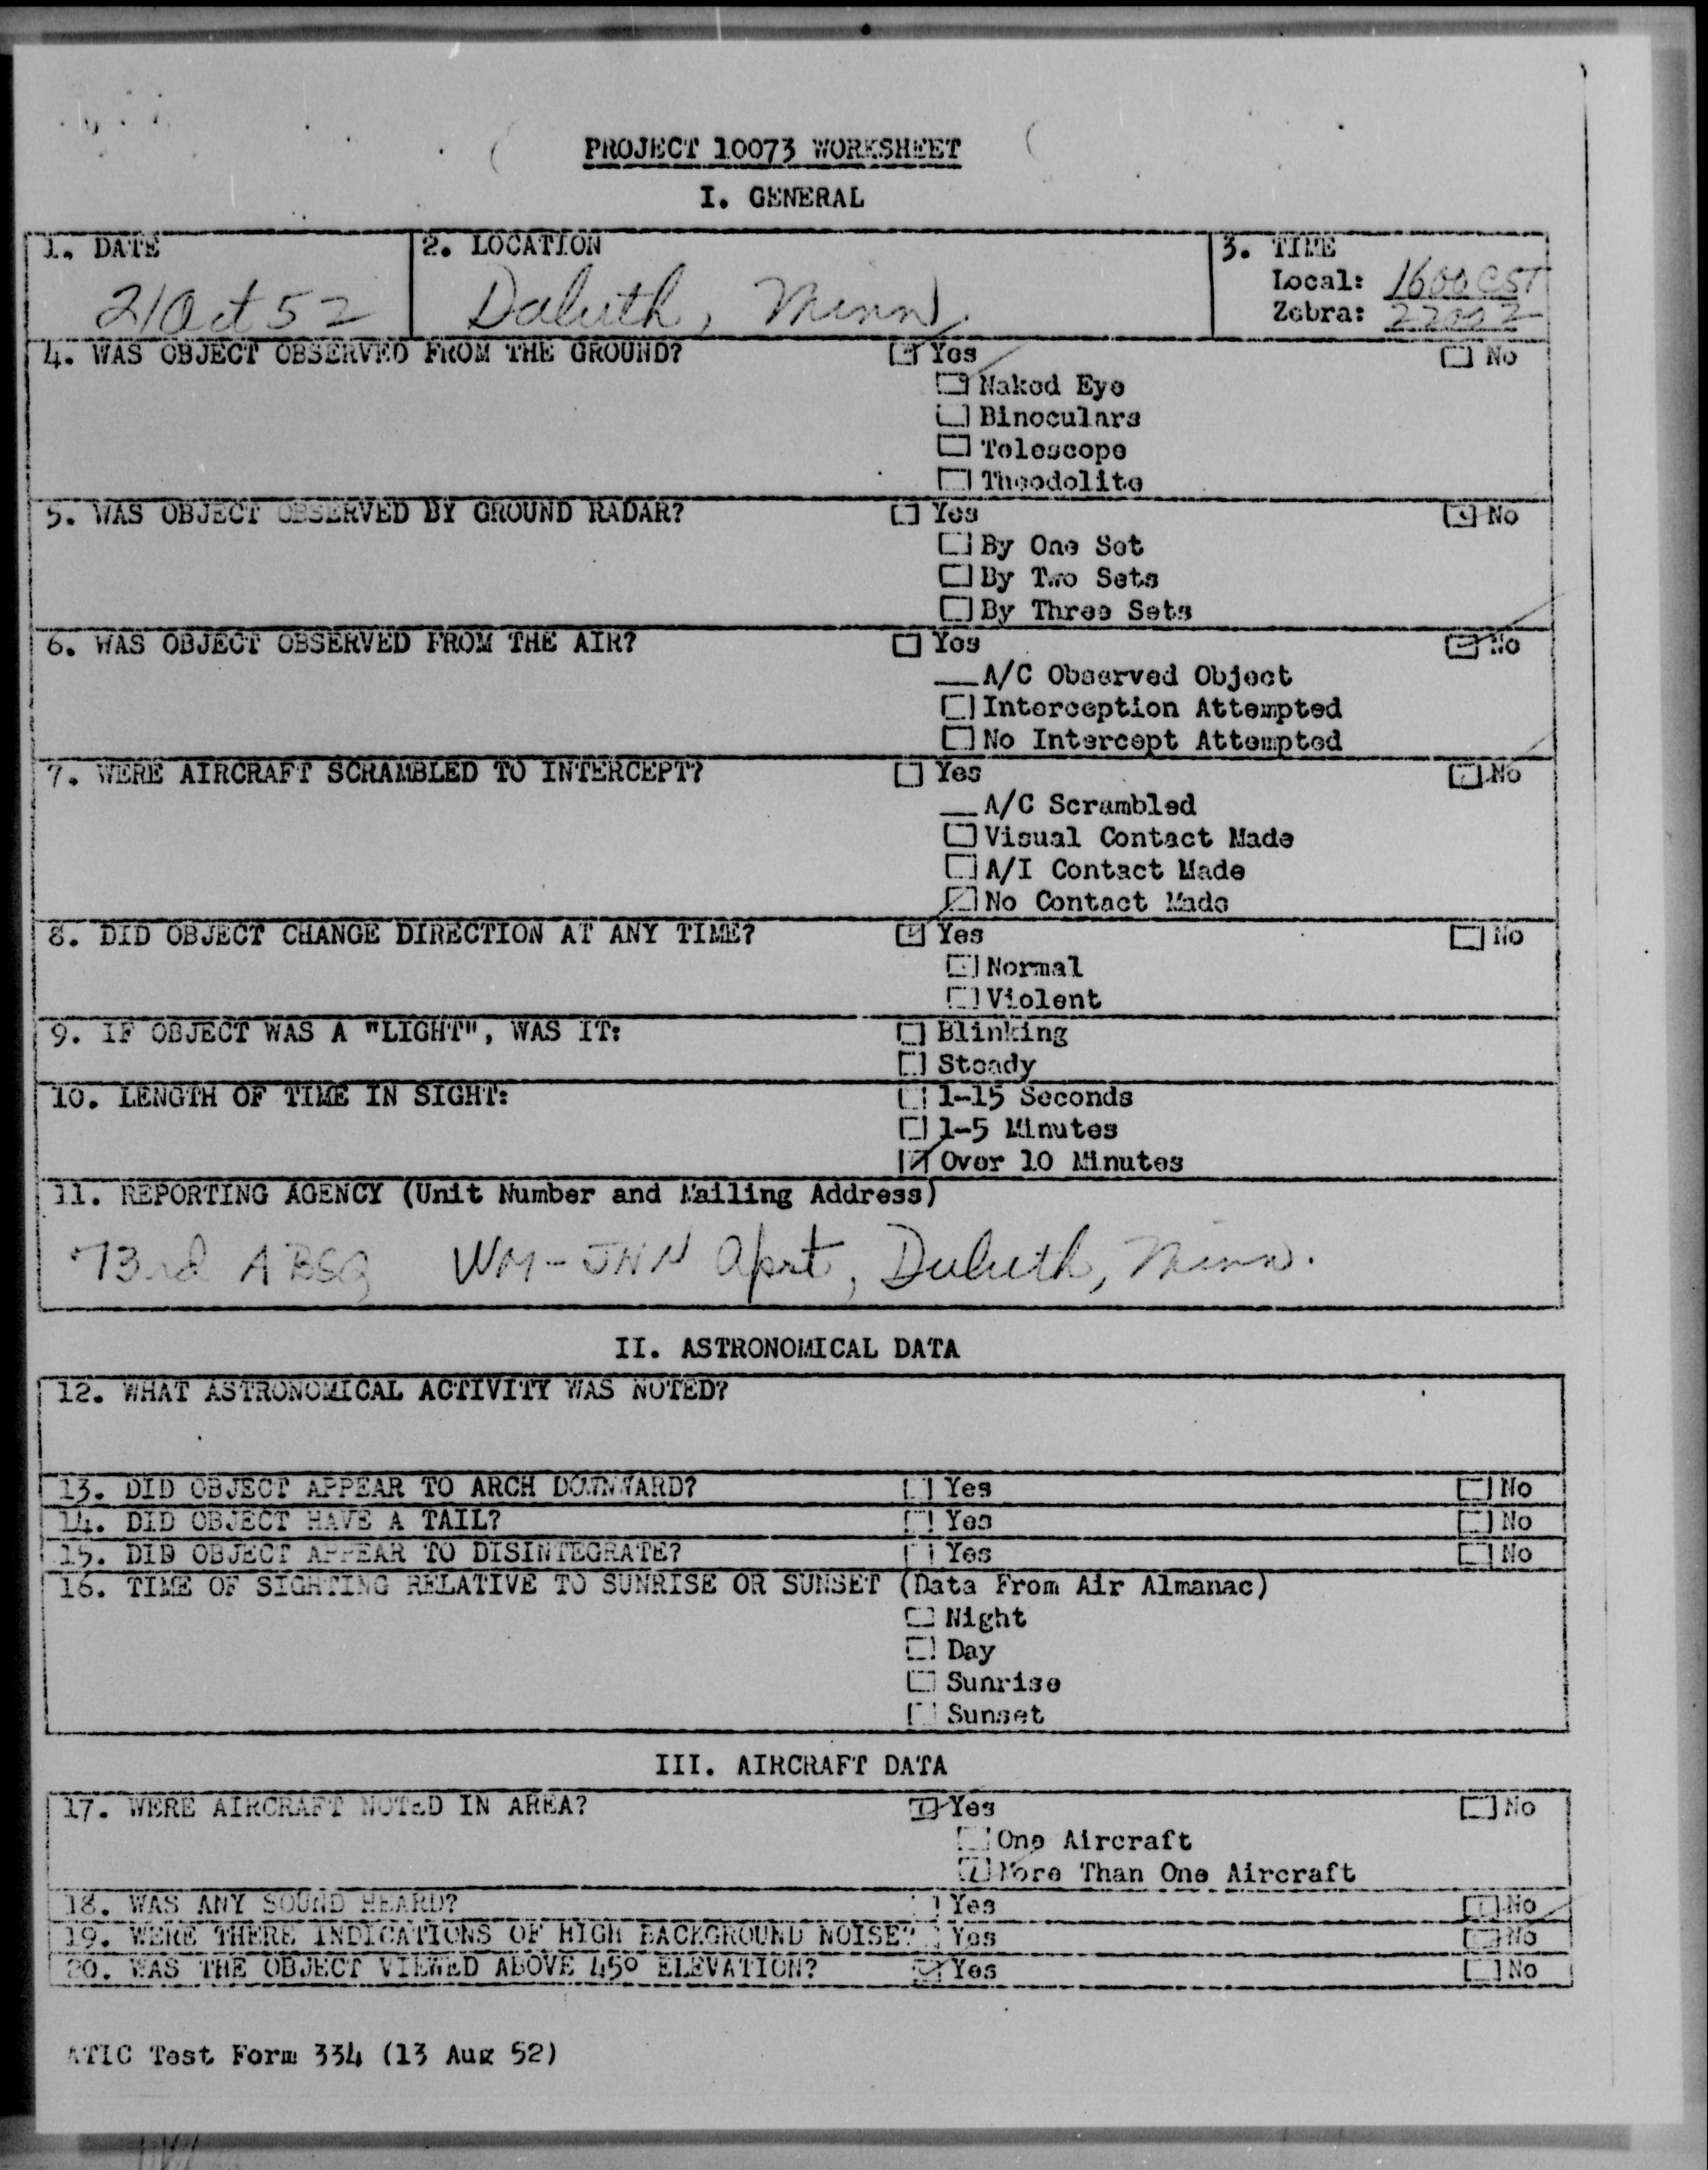 PROJECT 10073 WORKSHEET
I. GENERAL
1. DATE
2. LOCATION
3. TIME
21 Oct 52
Duluth, Minn.
Local: 1600 CST
Zebra: 2200Z
4. WAS OBJECT OBSERVED FROM THE GROUND? Yes No
Naked Eye
Binoculars
Telescope
Theodolite
5. WAS OBJECT OBSERVED BY GROUND RADAR? Yes No
By One Set
By Two Sets
By Three Sets
6. WAS OBJECT OBSERVED FROM THE AIR? Yes No
__A/C Observed Object
Interception Attempted
No Intercept Attempted
7. WERE AIRCRAFT SCRAMBLED TO INTERCEPT? Yes No
__A/C Scrambled
Visual Contact Made
A/I Contact Made
No Contact Made
8. DID OBJECT CHANGE DIRECTION AT ANY TIME? Yes No
Normal
Violent
9. IF OBJECT WAS A "LIGHT", WAS IT: Blinking
Steady
10. LENGTH OF TIME IN SIGHT: 1-15 Seconds
1-5 Minutes
Over 10 Minutes
11. REPORTING AGENCY (Unit Number and Mailing Address)
73rd ABSQ WM-JNN Aprt, Duluth, Minn.
II. ASTRONOMICAL DATA
12. WHAT ASTRONOMICAL ACTIVITY WAS NOTED?
13. DID OBJECT APPEAR TO ARCH DOWNWARD? Yes No
14. DID OBJECT HAVE A TAIL? Yes No
15. DID OBJECT APPEAR TO DISINTEGRATE? Yes No
16. TIME OF SIGHTING RELATIVE TO SUNRISE OR SUNSET (Data From Air Almanac)
Night
Day
Sunrise
Sunset
III. AIRCRAFT DATA
17. WERE AIRCRAFT NOTED IN AREA? Yes No
One Aircraft
More Than One Aircraft
18. WAS ANY SOUND HEARD? Yes No
19. WERE THERE INDICATIONS OF HIGH BACKGROUND NOISE? Yes No
20. WAS THE OBJECT VIEWED ABOVE 45° ELEVATION? Yes No
ATIC Test Form 334 (13 Aug 52)